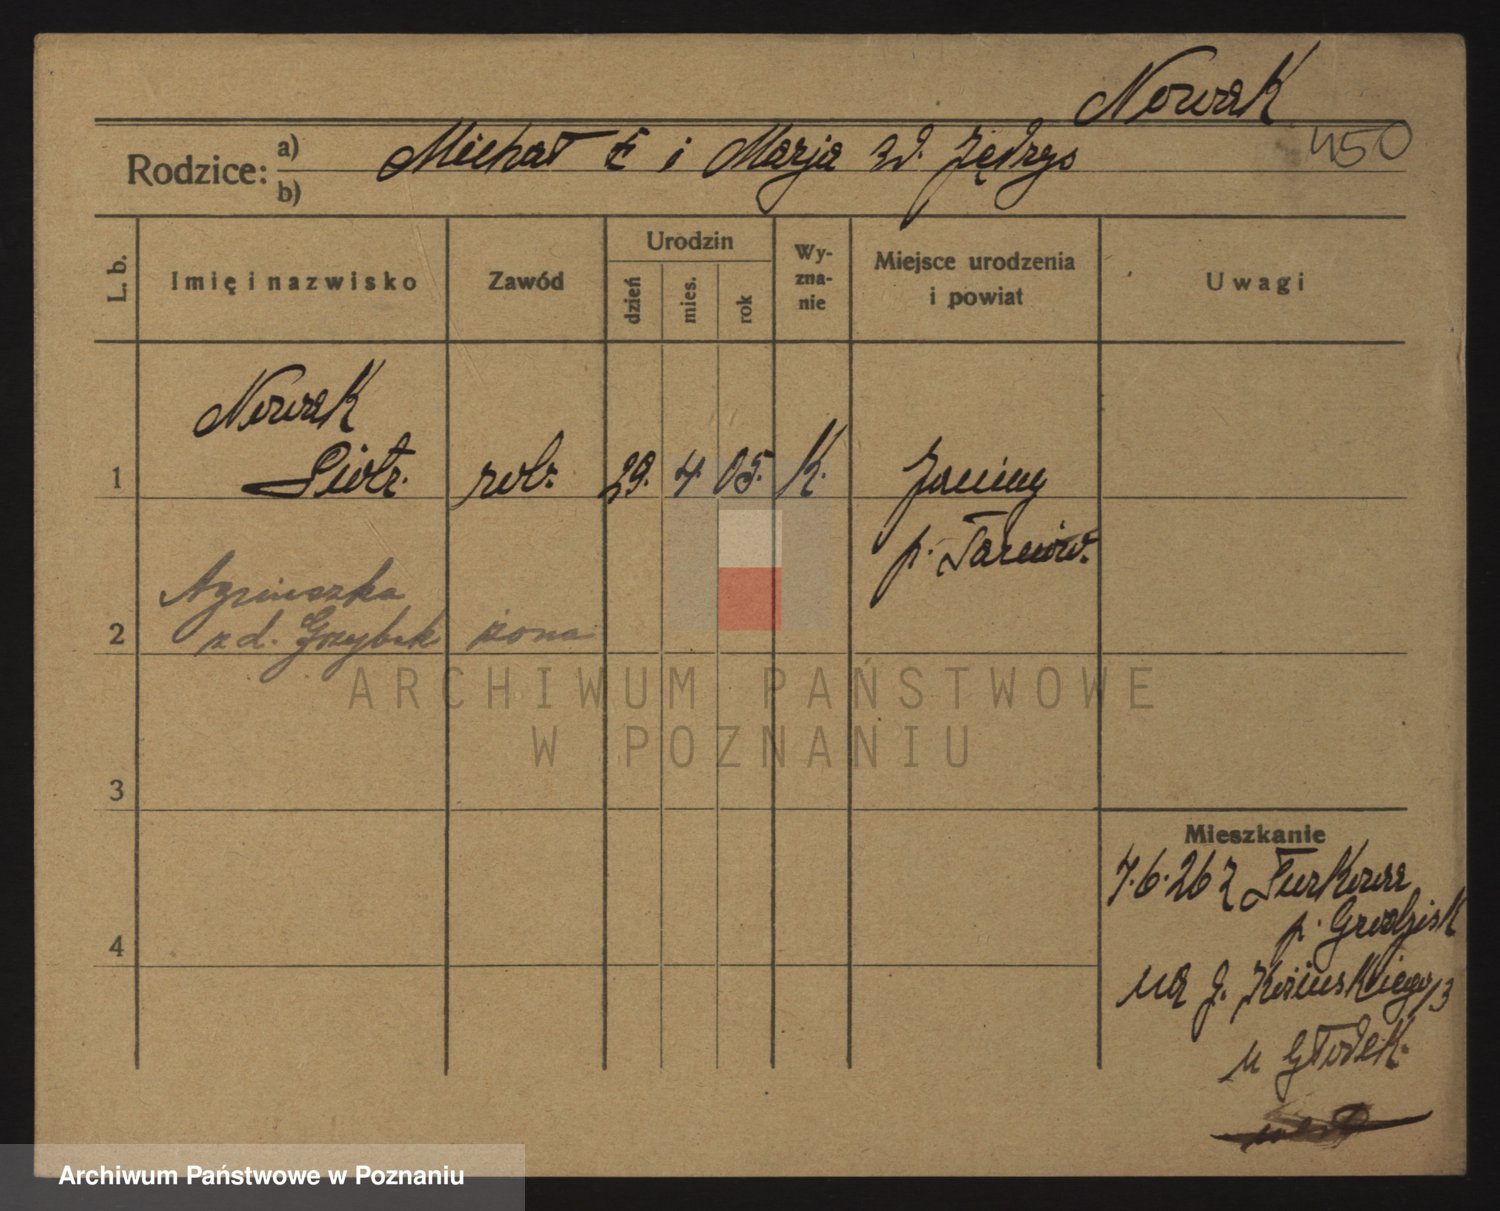 Nowak
450
Rodzice: a) Michał i Marja zd. Jędrys
b)
L. b.
Imię i nazwisko
Zawód
Urodzin
dzień
mies.
rok
Wy-
zna-
nie
Miejsce urodzenia
i powiat
Uwagi
Nowak
1 Piotr. rob. 29. 4. 05. K. Janiny
p. Tarnów.
Agnieszka
2 z d. Grzybek żona
ARCHIWUM PAŃSTWOWE
W POZNANIU
3
Mieszkanie
7.6.26 z Turkowa
p. Grodzisk
4
na G. 13
u Głodek.
Archiwum Państwowe w Poznaniu